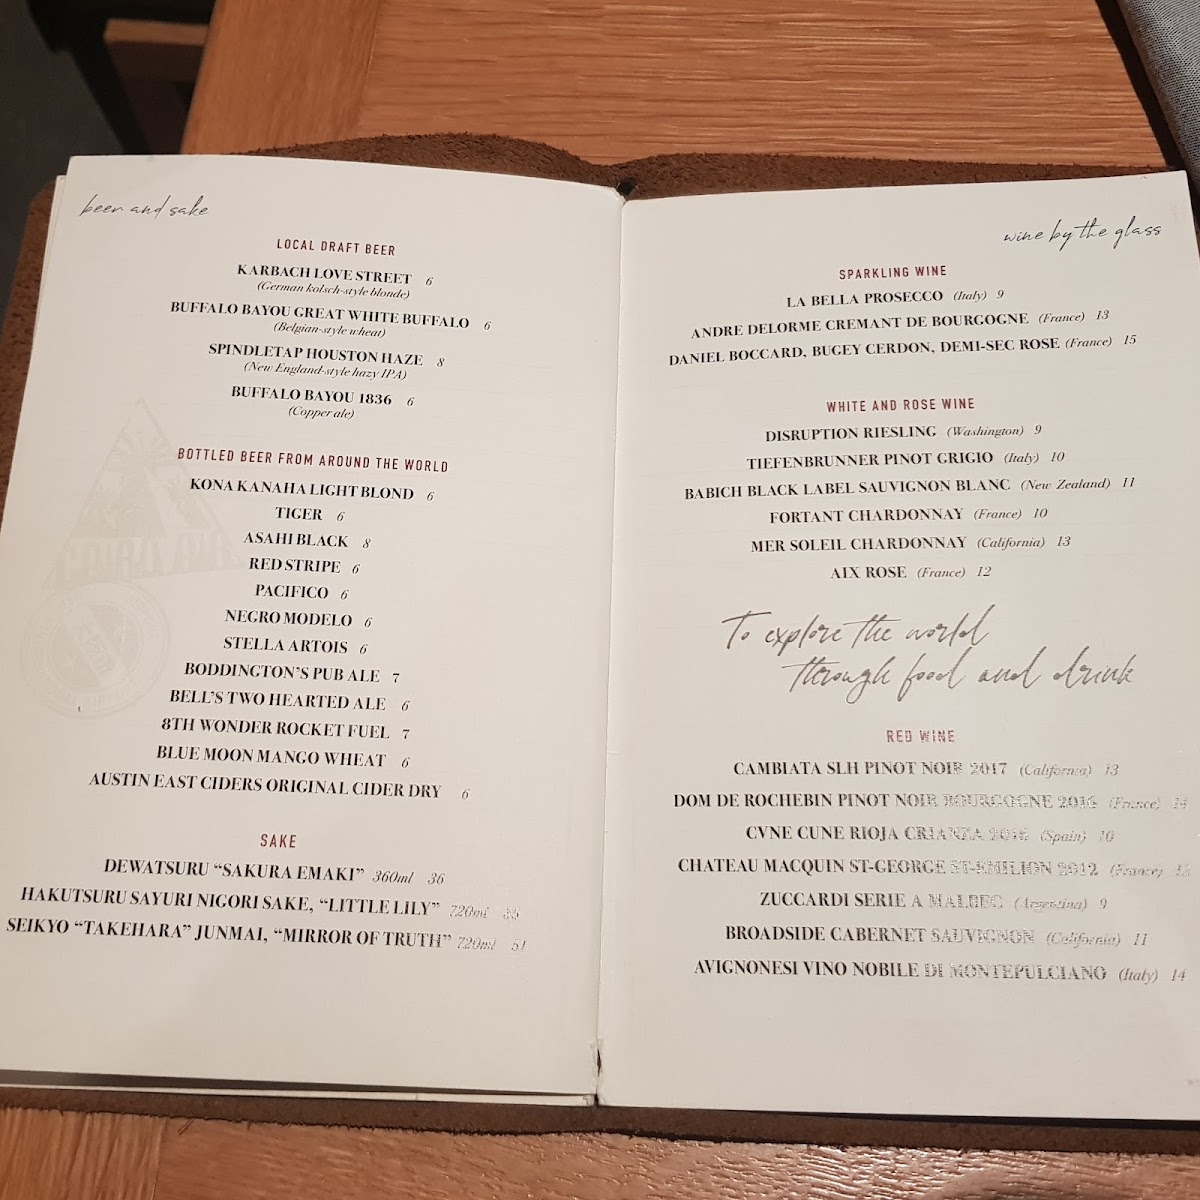 beer and sake
LOCAL DRAFT BEER
KARBACH LOVE STREET 6
(German kolsch-style blonde)
BUFFALO BAYOU GREAT WHITE BUFFALO 6
(Belgian-style wheat)
SPINDLETAP HOUSTON HAZE 8
(New England-style hazy IPA)
BUFFALO BAYOU 1836 6
(Copper ale)
BOTTLED BEER FROM AROUND THE WORLD
KONA KANAHA LIGHT BLOND 6
TIGER 6
ASAHI BLACK 8
RED STRIPE 6
PACIFICO 6
NEGRO MODELO 6
STELLA ARTOIS 6
BODDINGTON'S PUB ALE 7
BELL'S TWO HEARTED ALE 6
8TH WONDER ROCKET FUEL 7
BLUE MOON MANGO WHEAT 6
AUSTIN EAST CIDERS ORIGINAL CIDER DRY 6
SAKE
DEWATSURU “SAKURA EMAKI” 360ml 36
HAKUTSURU SAYURI NIGORI SAKE, “LITTLE LILY” 720ml
SEIKYO “TAKEHARA” JUNMAI, “MIRROR OF TRUTH” 720ml 51
wine by the glass
SPARKLING WINE
LA BELLA PROSECCO (Italy) 9
ANDRE DELORME CREMANT DE BOURGOGNE (France) 13
DANIEL BOCCARD, BUGEY CERDON, DEMI-SEC ROSE (France) 15
WHITE AND ROSE WINE
DISRUPTION RIESLING (Washington) 9
TIEFENBRUNNER PINOT GRIGIO (Italy) 10
BABICH BLACK LABEL SAUVIGNON BLANC (New Zealand) 11
FORTANT CHARDONNAY (France) 10
MER SOLEIL CHARDONNAY (California) 13
AIX ROSE (France) 12
To explore the world
through food and drink
RED WINE
CAMBIATA SLH PINOT NOIR 2017 (California) 13
DOM DE ROCHEBIN PINOT NOIR BOURGOGNE 2016 (France) 14
CVNE CUNE RIOJA CRIANZA (Spain) 10
CHATEAU MACQUIN ST-GEORGE ST-EMILION 2012 (France)
ZUCCARDI SERIE A MALBEC (Argentina) 9
BROADSIDE CABERNET SAUVIGNON (California) 11
AVIGNONESI VINO NOBILE DI MONTEPULCIANO (Italy) 14